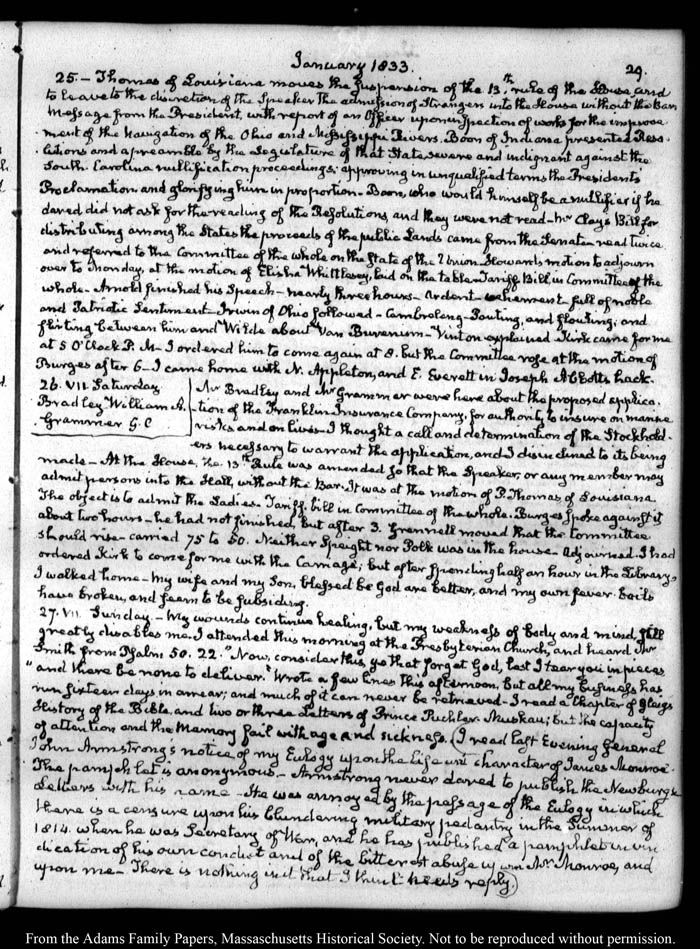 January 1833.
29.
25.- Thomas of Louisiana moves the suspension of the 13th rule of the House, and
to leave to the discretion of the Speaker the admission of Strangers into the House without the Bar
Message from the President, with report of an Officer upon inspection of works for the improve-
-ment of the Navigation of the Ohio and Mississippi Rivers. Boon of Indiana presented Reso-
-lutions and a preamble by the Legislature of that State, severe and indignant against the
South Carolina nullification proceedings; approving in unqualified terms the President's
Proclamation and glorifying him in proportion. Boon, who would himself be a nullifier if he
dared did not ask for the reading of the Resolutions, and they were not read- Mr Clay's Bill for
distributing among the States the proceeds of the public Lands came from the Senate- read twice
and referred to the Committee of the whole on the State of the Union. Howard's motion to adjourn
over to Monday, at the motion of Elisha Whittlesey, laid on the table. Tariff Bill in Committee of the
whole- Arnold finished his Speech- nearly three hours- Ardent- vehement- full of noble
and Patriotic Sentiment- Irwin of Ohio followed- Cambreleng- Pouting, and flouting; and
flirting between him and Wilde about Van Burenism- Vinton explained- Kirk came for me
at 5 O'Clock P. M- I ordered him to come again at 8. but the Committee rose at the motion of
Burges after 6- I came home with N. Appleton, and E. Everett in Joseph Abbotts hack.
26. VII. Saturday
Bradley William A.
Grammer G. C
Mr Bradley and Mr Grammer were here about the proposed applica-
-tion of the Franklin Insurance Company, for authority to insure on marine
risks and on lives- I thought a call and determination of the Stockhold-
ers necessary to warrant the application, and I disinclined to its being
made- At the House, the 13th Rule was amended so that the Speaker, or any member may
admit persons into the Hall, without the Bar. It was at the motion of P. Thomas of Louisiana
The object is to admit the Ladies. Tariff bill in Committee of the whole. Burges spoke against it
about two hours- he had not finished, but after 3. Grennell moved that the Committee
should rise- carried 75 to 50. Neither Speight nor Polk was in the house- Adjourned. I had
ordered Kirk to come for me with the Carriage; but after spending half an hour in the Library,
I walked home- My wife and my Son, blessed be God are better, and my own fever boils
have broken, and seem to be subsiding.
27. VII. Sunday- My wounds continue healing, but my weakness of body and mind, still
greatly disables me. I attended this morning at the Presbyterian Church, and heard Mr
Smith from Psalm 50. 22. "Now, consider this, ye that forget God, lest I tear you in pieces
"and there be none to deliver." Wrote a few lines this afternoon, but all my business has
run fifteen days in arrear; and much of it can never be retrieved- I read a Chapter of Gleig's
History of the Bible, and two or three Letters of Prince Puckler Muskau; but the capacity
of attention and the Memory fail with age and sickness. (I read last Evening General
John Armstrong's notice of my Eulogy upon the life and character of James Monroe.
The pamphlet is anonymous- Armstrong never dared to publish the Newburgh
Letters with his name- He was annoyed by the passage of the Eulogy in which
there is a censure upon his blundering military pedantry in the Summer of
1814. when he was Secretary of War, and he has published a pamphlet in vin
dication of his own conduct and of the bitterest abuse upon Mr. Monroe, and
upon me- There is nothing in it that I think needs reply.)
From the Adams Family Papers, Massachusetts Historical Society. Not to be reproduced without permission.